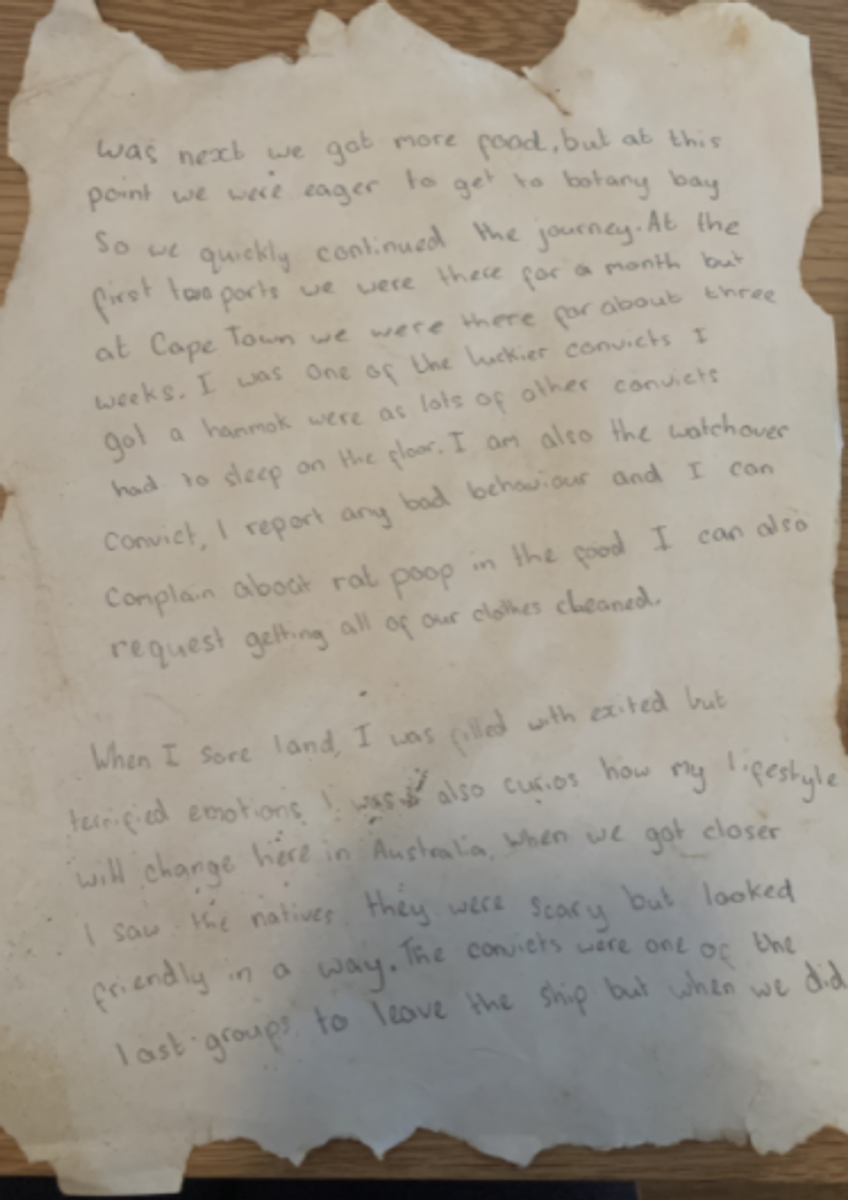 was next we got more food, but at this
point we were eager to get to botany bay
So we quickly continued the journey. At the
first two ports we were there for a month but
at Cape Town we were there for about three
weeks. I was one of the luckier convicts I
got a hanmok were as lots of other convicts
had to sleep on the floor. I am also the watchover
convict, I report any bad behaviour and I can
complain about rat poop in the food I can also
request getting all of our clothes cleaned.
When I sore land, I was filled with exited but
terrified emotions I was also curios how my lifestyle
will change here in Australia. When we got closer
I saw the natives they were scary but looked
friendly in a way. The convicts were one of the
last groups to leave the ship but when we did